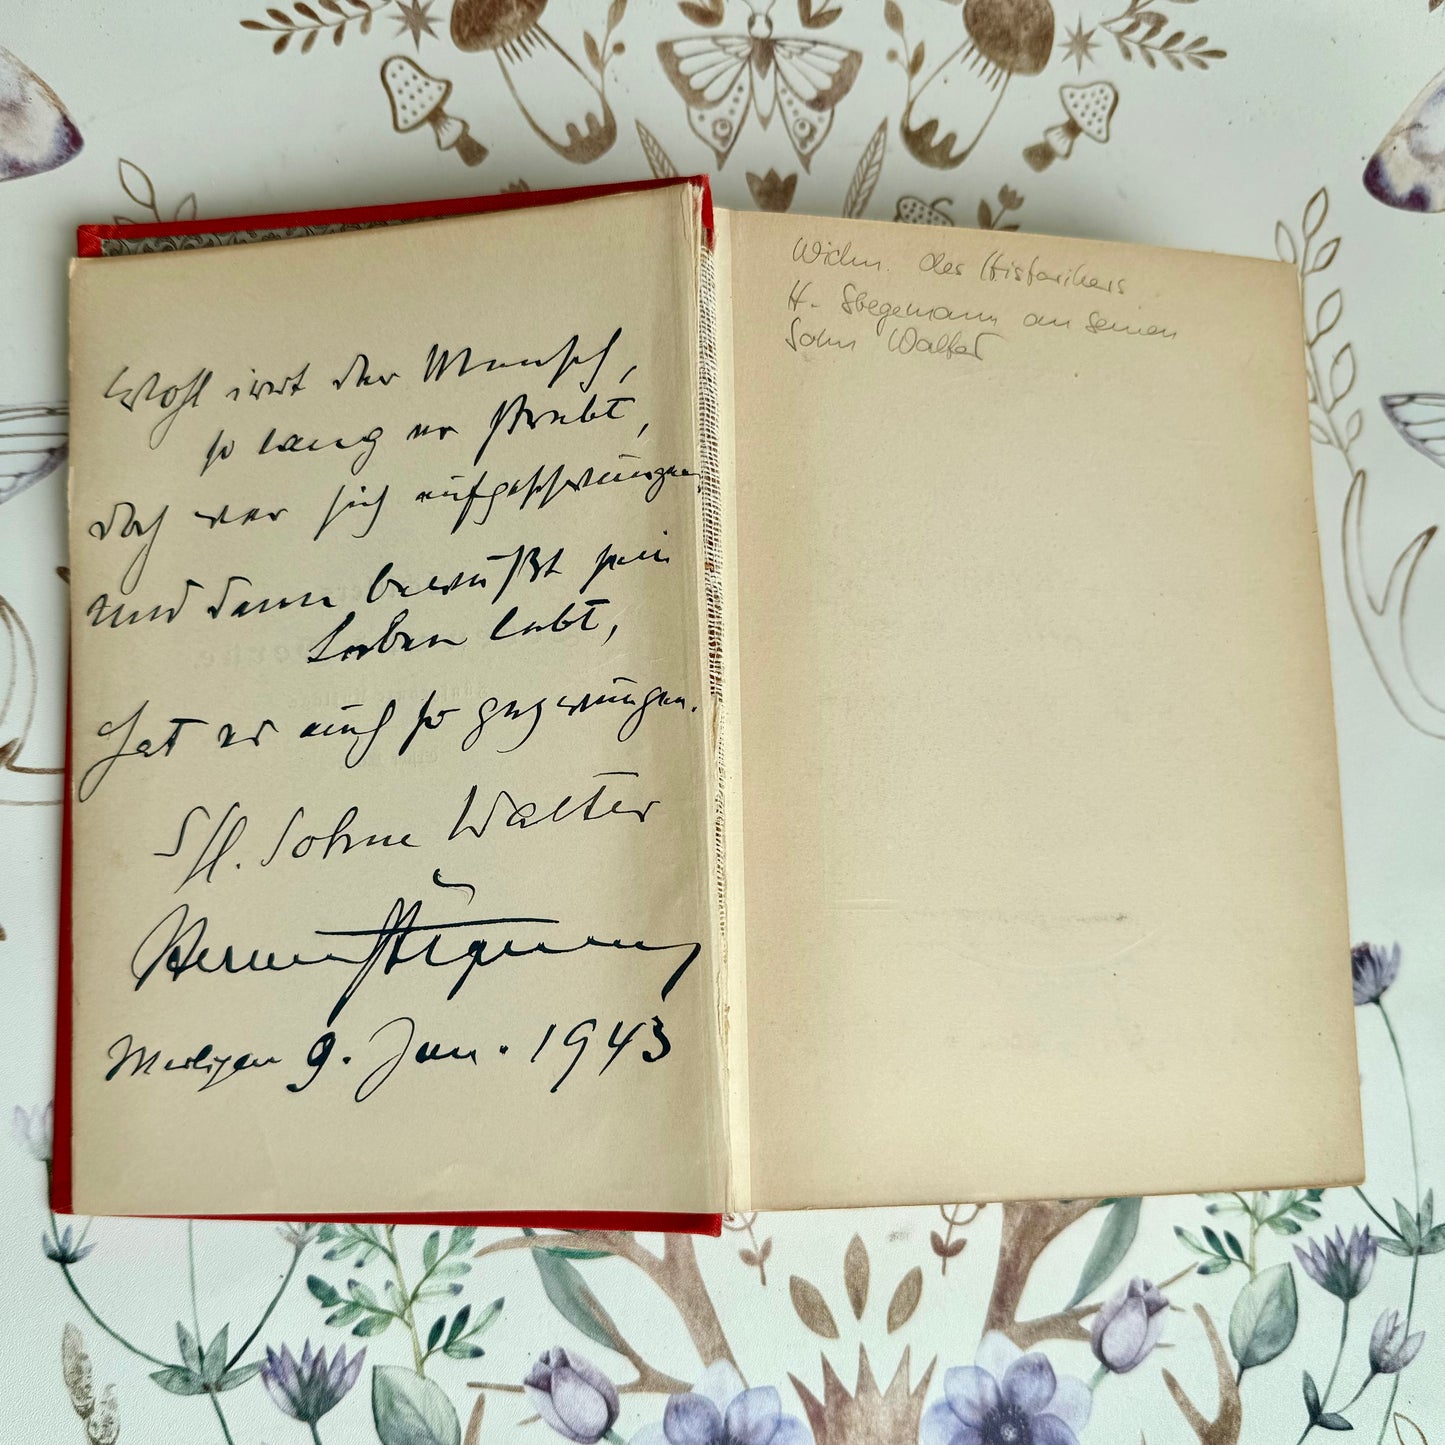 Wohl irrt der Mensch,
so lang er strebt,
doch wer sich aufgeschwungen
und dann bewußt sein
Leben lebt,
hat er auch so gezwungen.
Sohne Walter
Hermann Stegemann
Merligen 9. Jan. 1943
Widm. des Historikers
H. Stegemann an seinen
Sohn Walter